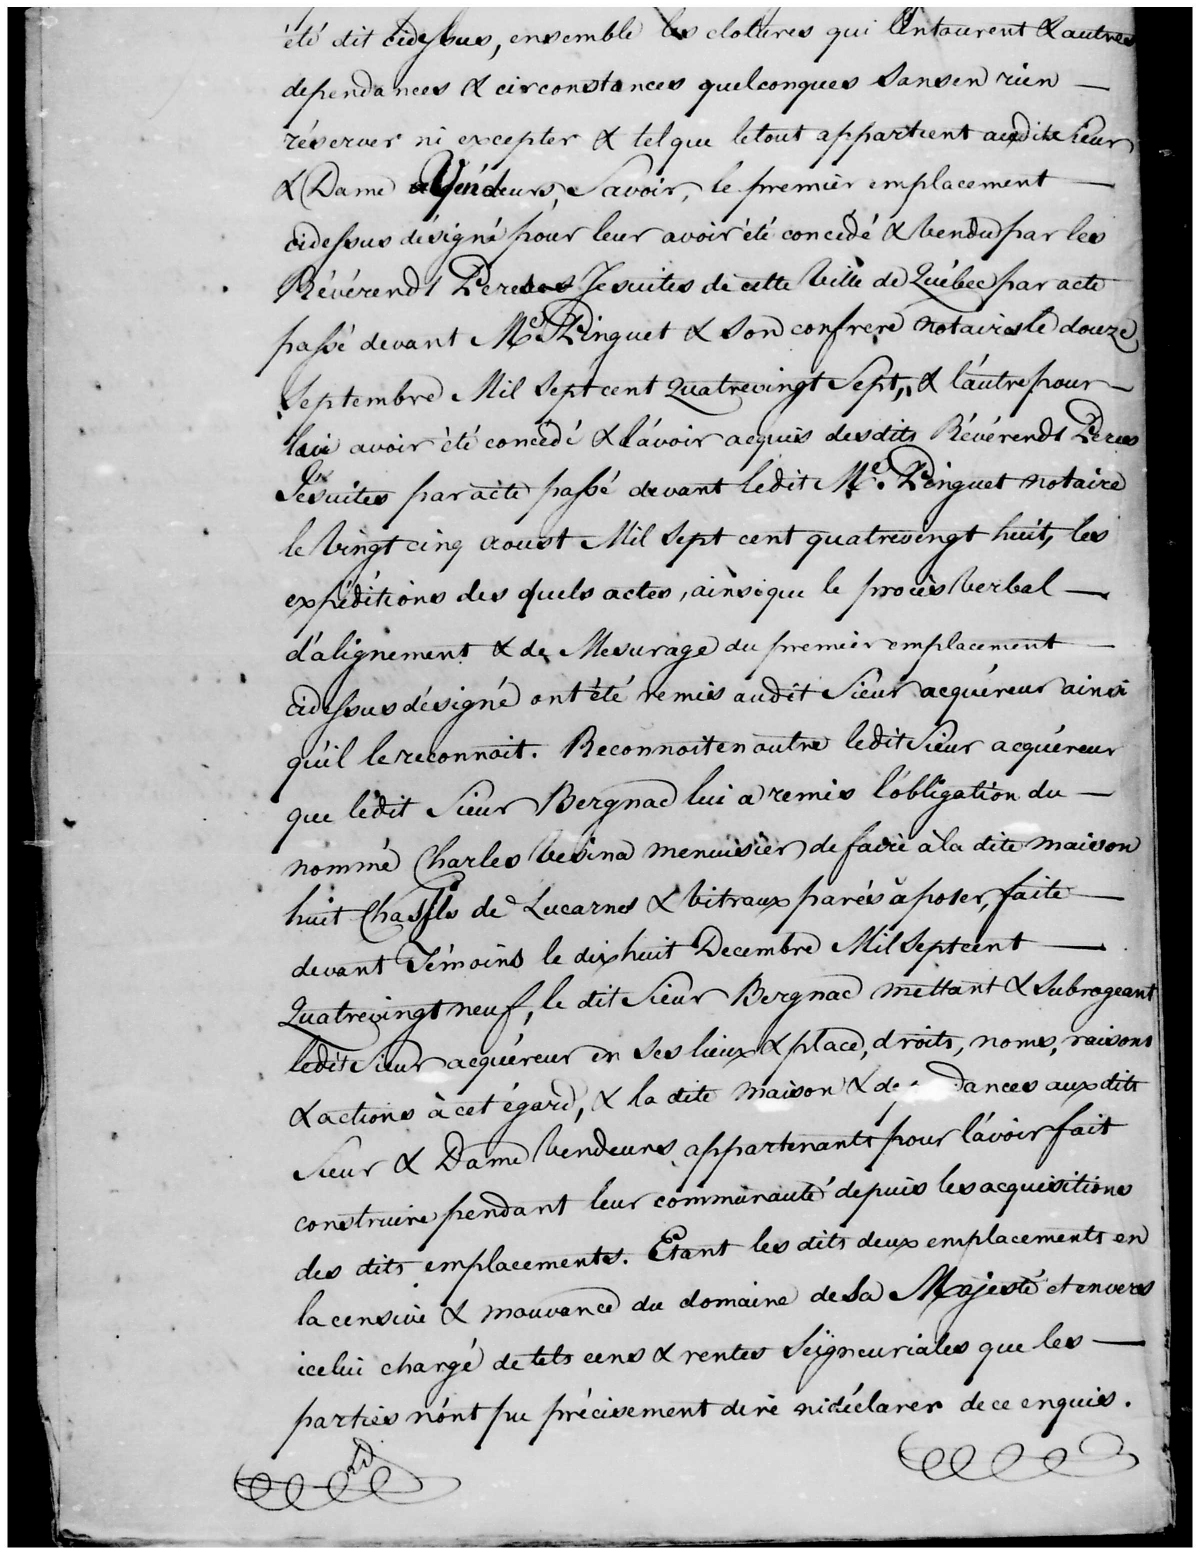 été dit cidessus, ensemble les clotures qui l'entourent & autres
dependances & circonstances quelconques sans en rien —
réserver ni excepter & tel que le tout appartient audits Sieur
& Dame Vendeurs, Savoir, le premier emplacement —
cidessus désigné pour leur avoir été concedé & vendu par les
Révérends Peres Jesuites de cette Ville de Québec par acte
passé devant Me. Pinguet & son confrere notaires le douze
Septembre Mil Sept cent Quatrevingt Sept, & l'autre pour —
avoir été concédé & l'avoir acquis desdits Révérends Peres
Jésuites par acte passé devant ledit Me. Pinguet notaire
le vingt cinq aoust Mil Sept cent quatrevingt huit, les
expéditions des quels actes, ainsi que le procès Verbal —
d'alignement & de Mesurage du premier emplacement —
cidessus désigné ont été remis audit Sieur acquéreur ainsi
qu'il le reconnait. Reconnoit en outre ledit Sieur acquéreur
que ledit Sieur Bergnac lui a remis l'obligation du —
nommé Charles Vesina menuisier de faire à la dite maison
huit Chassis de Lucarnes & vitraux parés à poser, faite —
devant Témoins le dix huit Decembre Mil Sept cent —
Quatrevingt neuf, le dit Sieur Bergnac mettant & Subrogeant
ledit Sieur acquéreur en ses lieux & place, droits, noms, raisons
& actions à cet égard, & la dite maison & de dances aux dits
Sieur & Dame Vendeurs appartenants pour l'avoir fait
construire pendant leur communauté depuis les acquisitions
des dits emplacements. Etant les dits deux emplacements en
la censive & mouvance du domaine de Sa Majesté et envers
icelui chargé de tels cens & rentes Seigneuriales que les —
parties n'ont pu précisement dire ni déclarer de ce enquis.